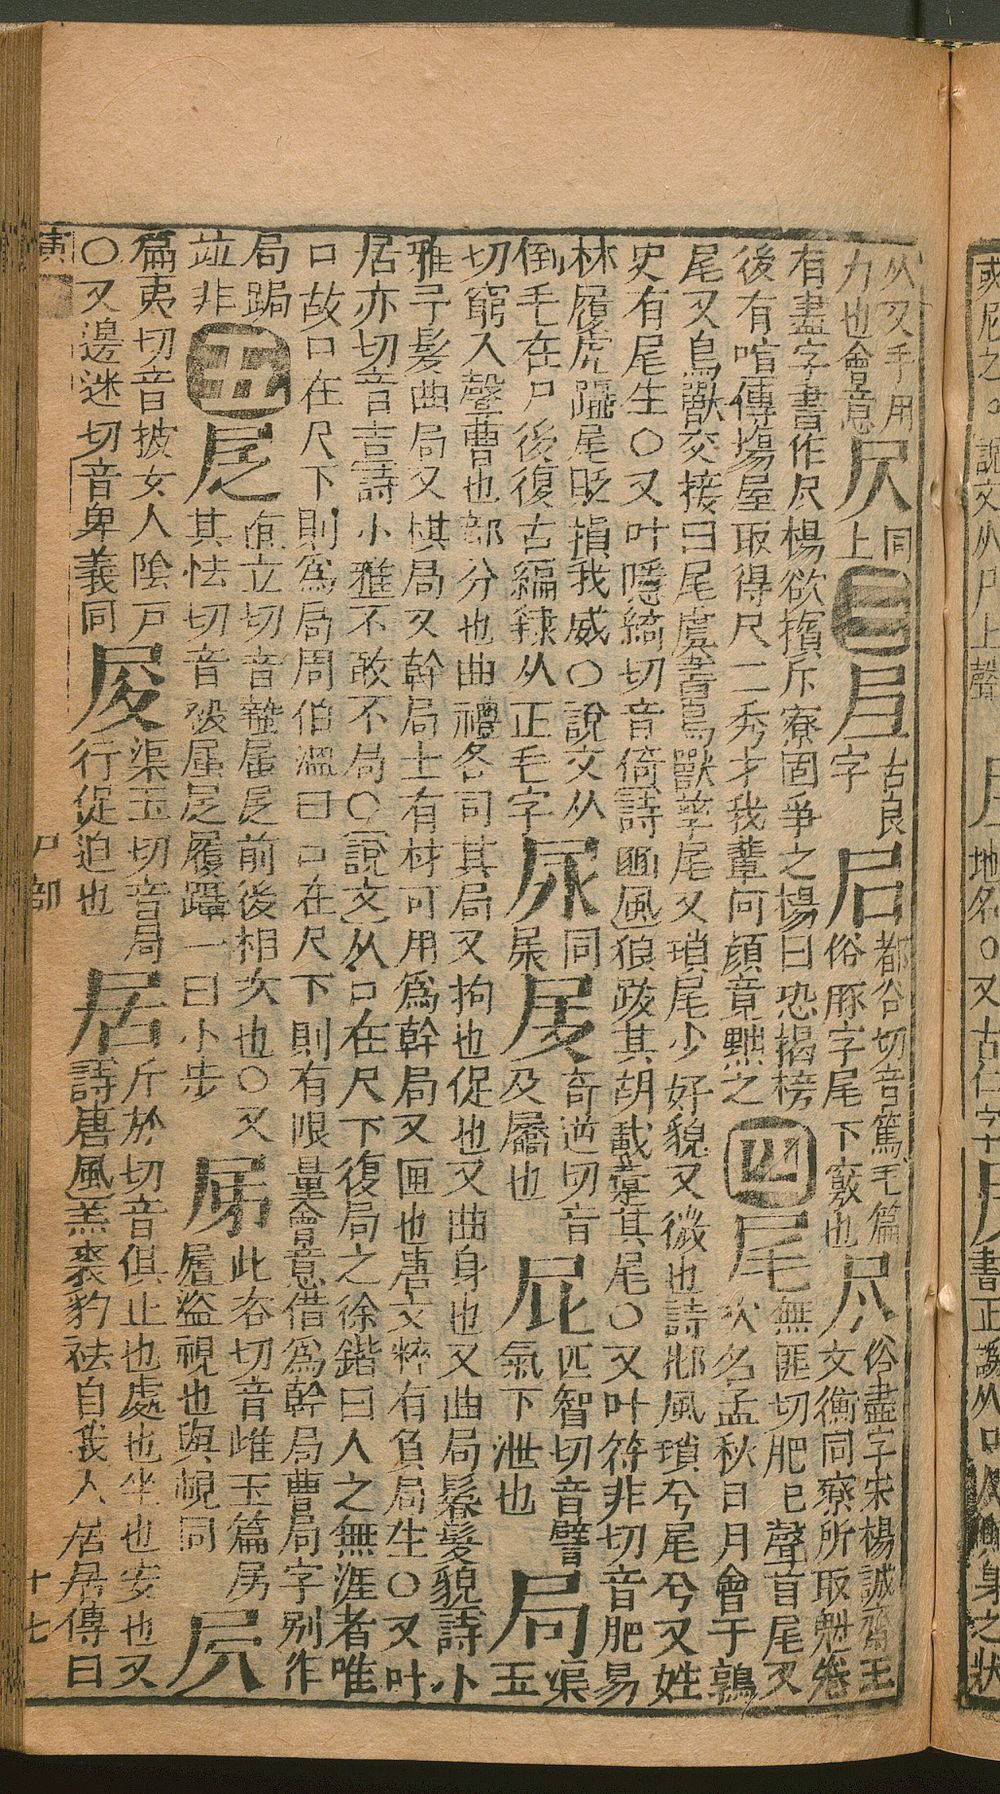 从又手用力也會意同上三古良字都谷切音篤毛篇俗豚字尾下竅也尽俗盡字宋楊誠齋王文衡同寮所取魁卷
有盡字書作尽楊欲擯斥寮固爭之楊曰恐揭榜後有喧傳場屋取得尺二秀才我輩何顏竟黜之四尾無匪切肥上聲首尾又次名孟秋日月會于鶉
尾又鳥獸交接曰尾虞書鳥獸孳尾又瑣尾少好貌又微也詩邶風瑣兮尾兮又姓史有尾生○又叶隱綺切音倚詩豳風狼跋其胡載疐其尾○又叶符非切音肥易
林履虎躡尾貶損我威○說文从倒毛在尸後復古編隸从正毛字同奇逆切音及屩也屁匹智切音譬氣下泄也局渠玉
切窮入聲曹也部分也曲禮各司其局又拘也促也又曲身也又曲局鬈髮貌詩小雅予髮曲局又棋局又幹局士有材可用爲幹局又匣也唐文粹有負局生○又叶
居亦切音吉詩小雅不敢不局○說文从口在尺下復局之徐鍇曰人之無涯者唯口故口在尺下則爲局周伯溫曰口在尺下則有限量會意借爲幹局曹局字別作
局跼竝非五直立切音蟄前後相次也○又其怯切音履躡一曰小步此咨切音雌玉篇盜視也與覗同
篇夷切音披女人陰戸○又邊迷切音卑義同渠玉切音局行促迫也居斤於切音俱止也處也坐也安也又詩唐風羔裘豹祛自我人居居傳曰
寅 尸部 十七